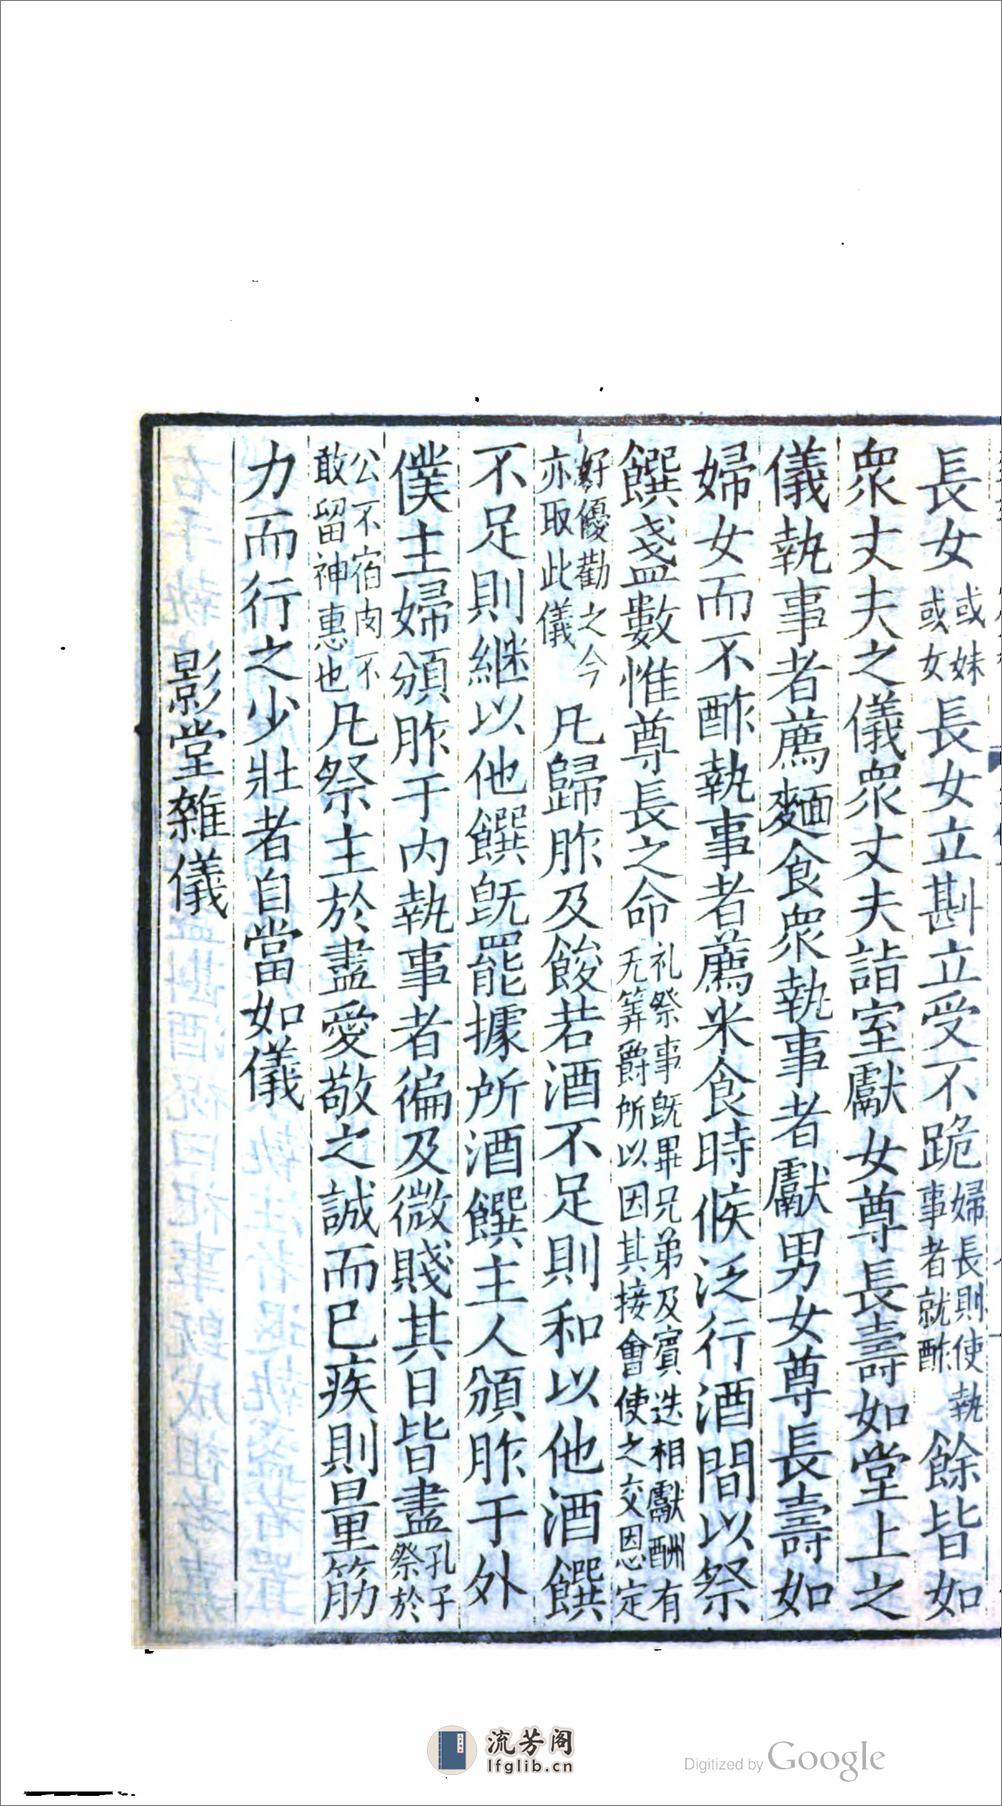 長女或妹或女長女立斟立受不跪婦長則使執事者就酢餘皆如
衆丈夫之儀衆丈夫詣室獻女尊長壽如堂上之
儀執事者薦麵食衆執事者獻男女尊長壽如
婦女而不酢執事者薦米食時候泛行酒間以祭
饌盞數惟尊長之命礼祭事旣畢兄弟及賓迭相獻酬有无筭爵所以因其接會使之交恩定
好優勸之今亦取此儀凡歸胙及餕若酒不足則和以他酒饌
不足則継以他饌旣罷據所酒饌主人頒胙于外
僕主婦頒胙于内執事者徧及微賤其日皆盡孔子祭於
公不宿肉不敢留神惠也凡祭主於盡愛敬之誠而已疾則量筋
力而行之少壯者自當如儀
影堂雜儀
流芳阁
lfglib.cn
Digitized by Google